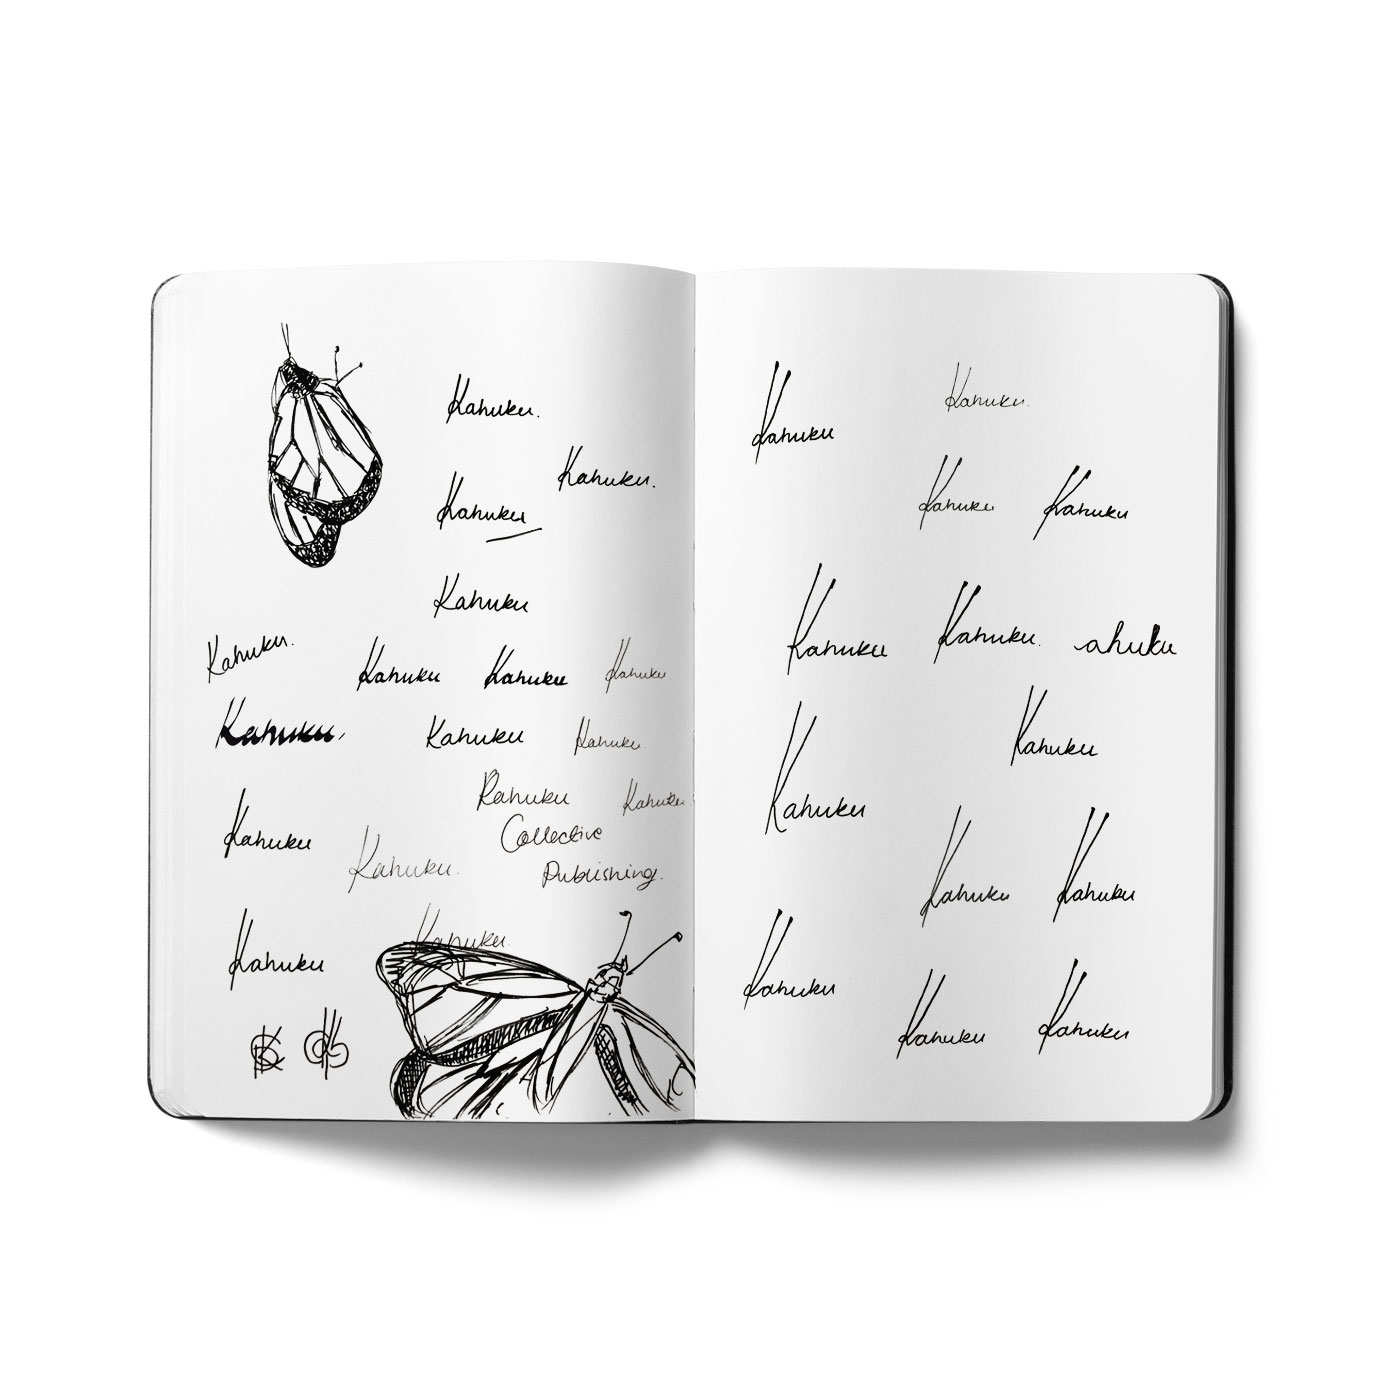 Kahuku.
Kahuku.
Kahuku
Kahuku
Kahuku.
Kahuku
Kahuku
Kahuku.
Kahuku.
Kahuku
Kahuku.
Kahuku
Collective
Publishing.
Kahuku.
Kahuku
Kahuku.
Kahuku.
Kahuku
Kahuku
Kahuku.
Kahuku
Kahuku
Kahuku
Kahuku.
ahuku
Kahuku
Kahuku
Kahuku
Kahuku
Kahuku
Kahuku
Kahuku